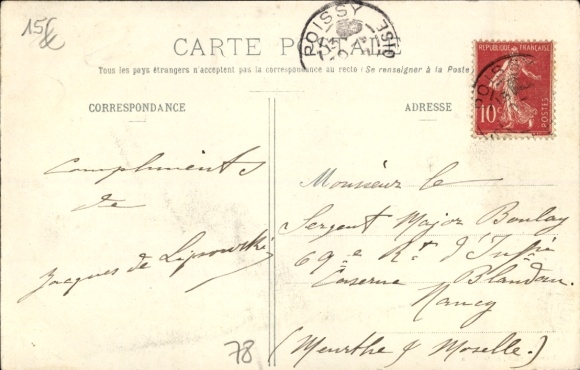 15€
POISSY
OISE
CARTE POSTALE
Tous les pays étrangers n'acceptent pas la correspondance au recto (Se renseigner à la Poste)
CORRESPONDANCE
ADRESSE
RÉPUBLIQUE FRANÇAISE
10c
POSTES
POISSY
Compliments
de
Jacques de Lipowski
Monsieur le
Sergent Major Boulay
69e Rt d'Infie
Caserne Blandan
Nancy
(Meurthe & Moselle.)
78